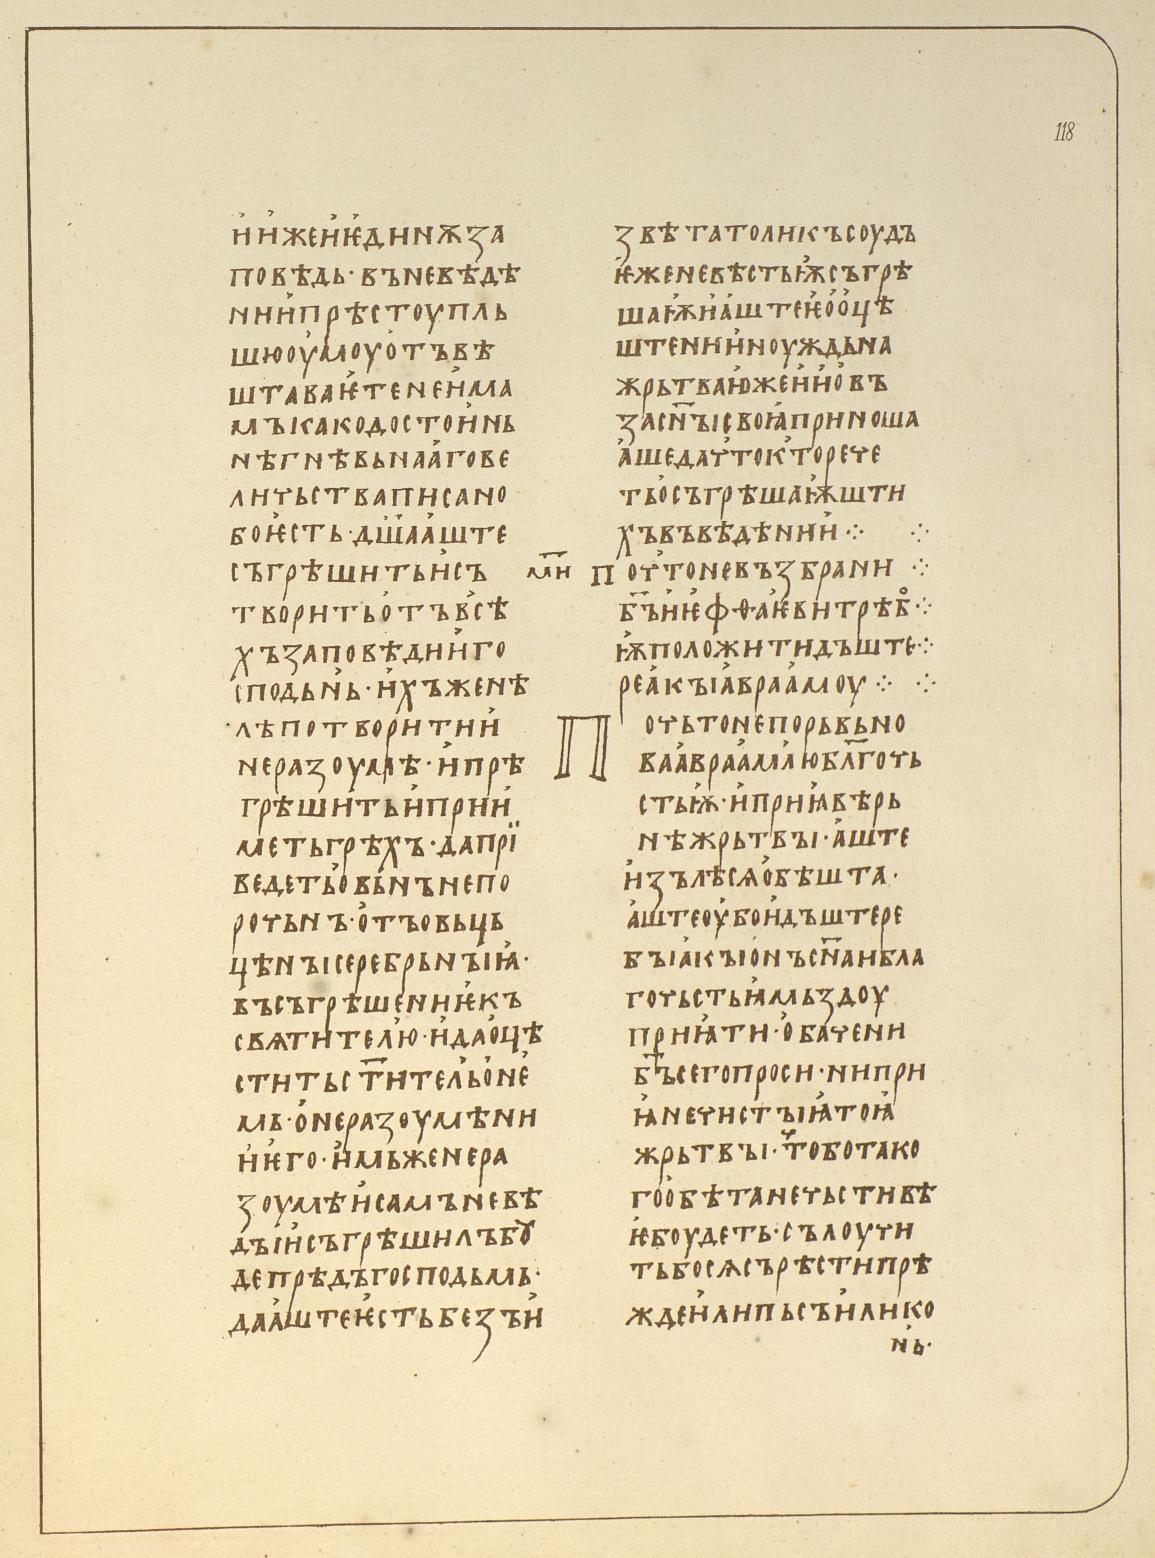 118
и҆ и҆жеи҆ ѥ҆динѫза
повѣдь· въневѣдѣ
нии҆прѣстоупль
шюоу҆моуо҆тъвѣ
штаваѥ҆тенеи҆ма
мъікакодостои҆нь
нѣгнѣвьнаа҆гове
личьстваписано
боѥ҆сть·дш҃аа҆ште
съгрѣшитьи҆съ
творитьо҆тъвсѣ
хъзаповѣдии҆го
сподьнь·и҆хъженѣ
·лѣпотворитии҆
неразоумѣ·и҆прѣ
грѣшитьи҆прии҆
метьгрѣхъ·даприї
ведетьо҆вьнънепо
рочьнъ·о҆тъовьць
цѣнъісеребрьнъіꙗ҆·
въсъгрѣшениѥ҆къ
свѧтителю·и҆даоцѣ
ститьст҃ительо҆не҆
мь·о҆неразоумѣни
и҆ѥ҆го·и҆мьженера
зоумѣи҆самъневѣ
дъіи҆съгрѣшилъбꙋ
депрѣдъгосподьмь·
даа҆штеѥ҆стьбезъи҆
звѣтатоликъсоудъ
ѥ҆женевѣстьѭ҆съгрѣ
шаѭ҆и҆а҆штеѥ҆о҆о҆цѣ
штении҆ноуждьна
жрьтваю҆жеи҆и҆о҆въ
засн҃ъісвоꙗ҆приноша
а҆шедаꙋ҆токторече
тьо҆съгрѣшаѭ҆шти
хъвъвѣдѣнии҆ ⁘ ⁘
ми҃ поу҆тоневъзбрани ⁘
б҃ъи҆ѥ҆фѳаѥ҆витрѣб ⁘
ѭ҆положитидъште ⁘
реа҆къіа҆враа҆моу ⁘ ⁘
Почьтонепорьвьно
ваа҆враа҆млюбл҃гочь
стьѭ҆·и҆приꙗ҆вѣрь
нѣжрьтвъі·а҆ште
и҆зълѣсѧо҆бѣшта·
а҆штеоу҆бои҆дъштере
бъіа҆къіо҆нъсн҃аибла
гочьстьꙗ҆мьздоу
приꙗ҆ти·о҆бачени
б҃ъсегопроси·нипри
ꙗ҆нечистъіꙗ҆тоꙗ҆
жрьтвъі·чтоботако
гоо҆бѣтанечьстивѣ
ѥ҆боудеть·сълоучи
тьбосѧсърѣстипрѣ
ждеи҆липьсъи҆лико
нь·